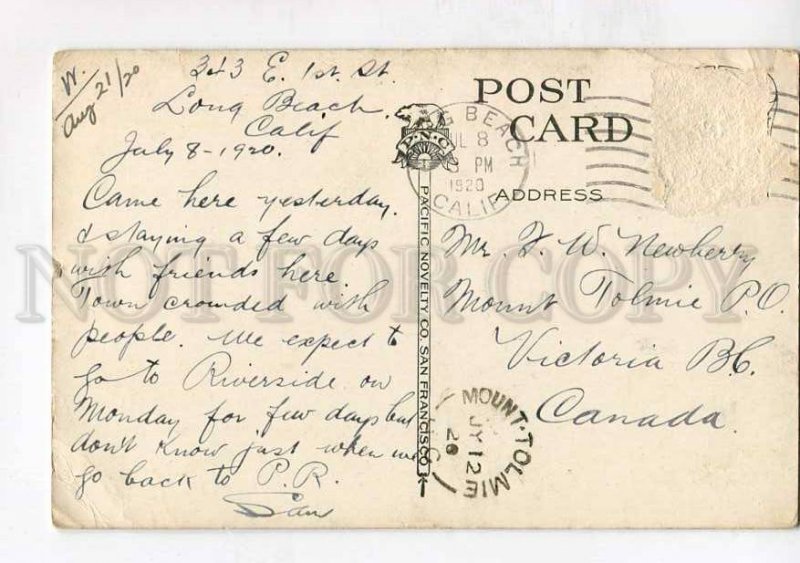 W.
Aug 21/20
343 E. 1st. St.
Long Beach.
Calif
July 8-1920.
Came here yesterday.
& staying a few days
with friends here
Town crowded with
people. We expect to
go to Riverside on
Monday for few days but
don't know just when we
go back to P.R.
POST
CARD
ADDRESS
P.N.C.
BEACH
8
PM
1920
CALIF
PACIFIC NOVELTY CO. SAN FRANCISCO
Mr. F. W. Newberry
Mount Tolmie P.O.
Victoria B.C.
Canada.
MOUNT-TOLMIE
JY 12
20
NOT FOR COPY